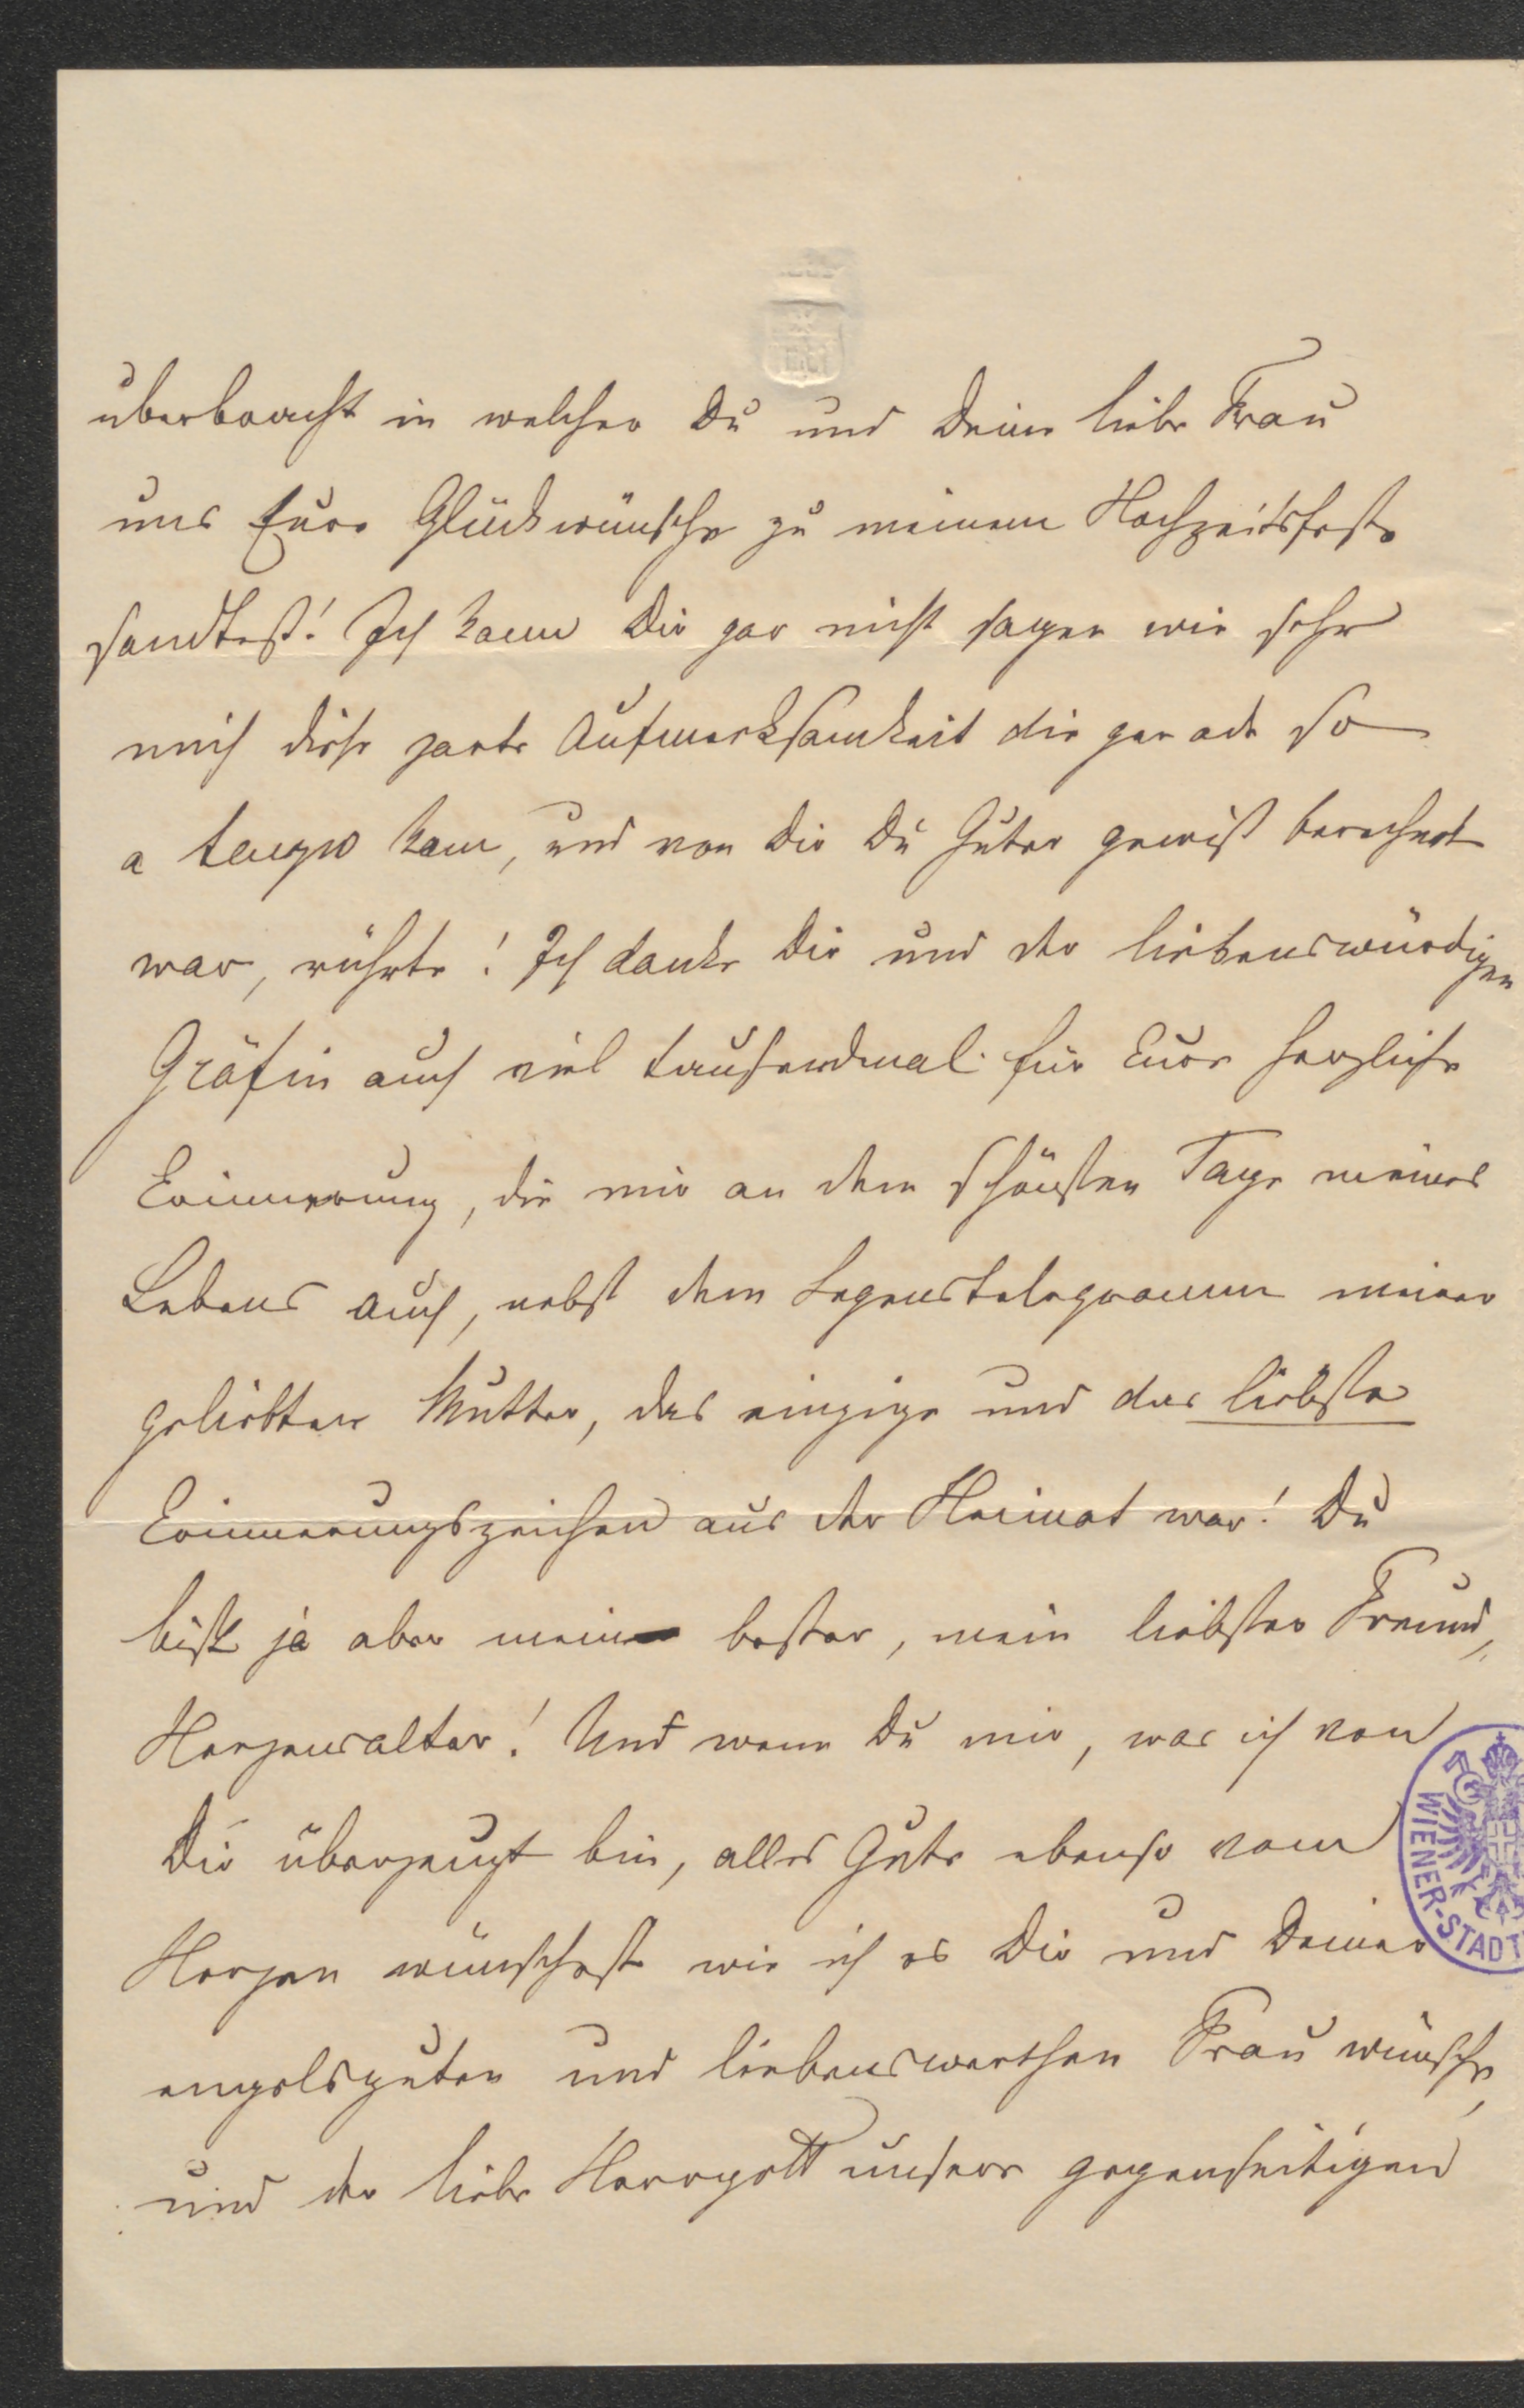 überbracht in welcher Du und Deine liebe Frau
uns Eure Glückwünsche zu meinem Hochzeitsfeste
sandtest! Ich kann Dir gar nicht sagen wie sehr
mich diese zarte Aufmerksamkeit die gerade so
a tempo kam, und von Dir Du Guter gewiß berechnet
war, rührte! Ich danke Dir und der liebenswürdigen
Gräfin auch viel tausendmal für Eure herzliche
Erinnerung, die mir an dem schönsten Tage meines
Lebens auch, nebst dem Segenstelegramm meiner
geliebten Mutter, das einzige und das liebste
Erinnerungszeichen aus der Heimat war! Du
bist ja aber mein bester, mein liebster Freund,
Herzensalter! Und wenn Du mir, was ich von
Dir überzeugt bin, alles Gute ebenso vom
Herzen wünschest wie ich es Dir und Deiner
engelsguten und liebenswerthen Frau wünsche,
und der liebe Herrgott unsere gegenseitigen
WIENER-STADT